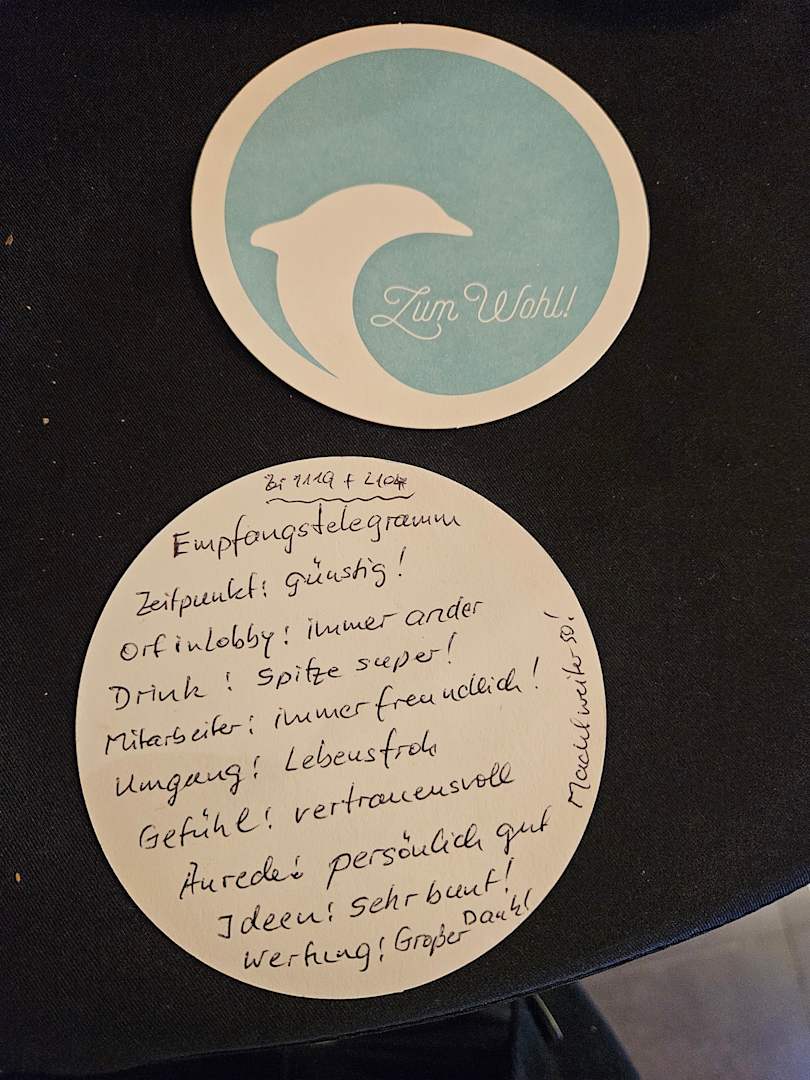 Zum Wohl!
Zi 1119 + 210
Empfangstelegramm
Zeitpunkt! günstig!
Ort in Lobby! immer ander
Drink! Spitze super!
Mitarbeiter! immer freundlich!
Umgang! Lebensfroh
Gefühl! vertrauensvoll
Anrede! persönlich gut
Ideen! Sehr bunt!
Wertung! Großer Dank!
Macht weiter so!